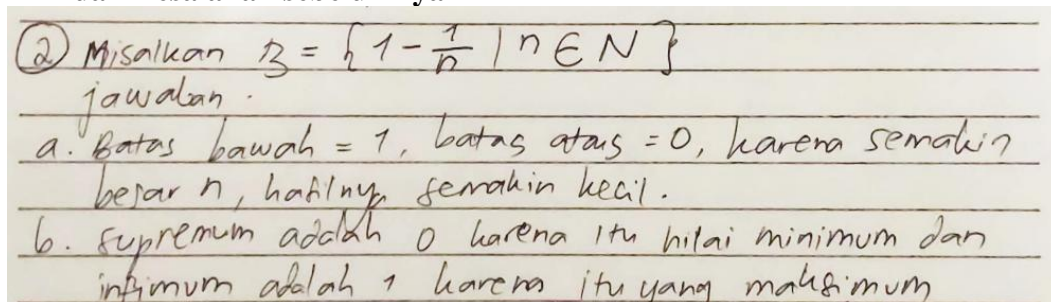 ② Misalkan B = { 1 - 1/n | n ∈ N }
jawaban.
a. Batas bawah = 1, batas atas = 0, karena semakin
besar n, hasilnya semakin kecil.
b. supremum adalah 0 karena itu nilai minimum dan
infimum adalah 1 karena itu yang maksimum